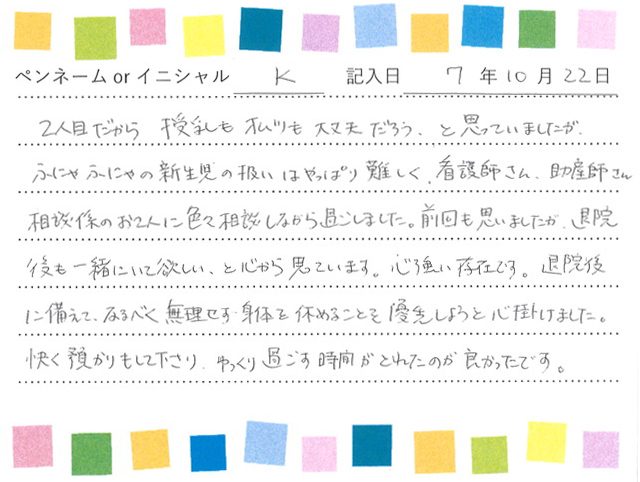 ペンネーム or イニシャル K 記入日 7 年 10 月 22 日
2人目だから 授乳も オムツも 大丈夫だろう、と思っていましたが、
ふにゃふにゃの新生児の扱いはやっぱり難しく、看護師さん、助産師さん
相談係のお2人に色々相談しながら過ごしました。前回も思いましたが、退院
後も一緒にいて欲しい、と心から思っています。心強い存在です。退院後
に備えて、なるべく無理せず身体を休めることを優先しようと心掛けました。
快く預かりもして下さり、ゆっくり過ごす時間がとれたのが良かったです。